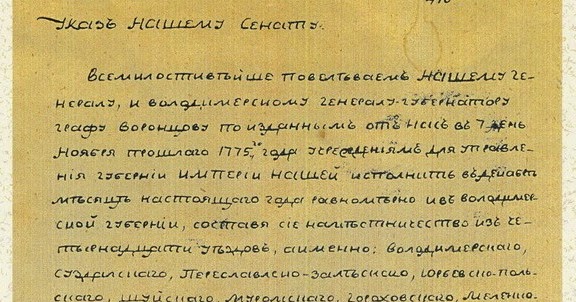 Указъ НАШЕМУ Сенату.
Всемилостивѣйше повелѣваемъ НАШЕМУ Ге-
нералу, и володимерскому генералу-губернатору
графу воронцову по изданнымъ отъ НАСЪ въ 7 день
Ноября прошлаго 1775 года учреждениямъ для управле-
нія губерніи ИМПЕРІИ НАШЕЙ исполнить въ
мѣсяцѣ настоящаго года равномѣрно и въ володимер-
ской губерніи, составя сіе намѣстничество изъ че-
тырнадцати уѣздовъ, аименно: володимерскаго,
суздальскаго, Переславско-залѣскаго, юрьевско-поль-
скаго, шуйскаго, муромскаго, гороховскаго, меленко-